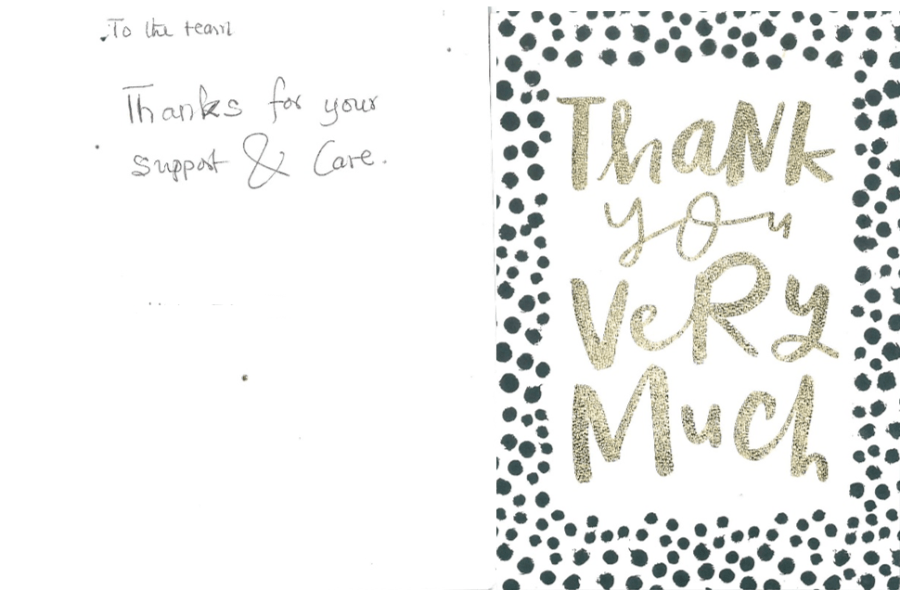 To the team
Thanks for your
support & Care.
Thank
you
Very
Much